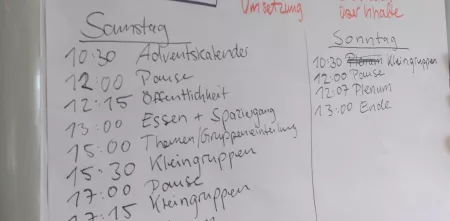 Umsetzung
über Inhalte
Samstag
10:30 Adventskalender
12:00 Pause
12:15 Öffentlichkeit
13:00 Essen + Spaziergang
15:00 Themen/Gruppeneinteilung
15:30 Kleingruppen
17:00 Pause
17:15 Kleingruppen
Sonntag
10:30 Plenum Kleingruppen
12:00 Pause
12:07 Plenum
13:00 Ende